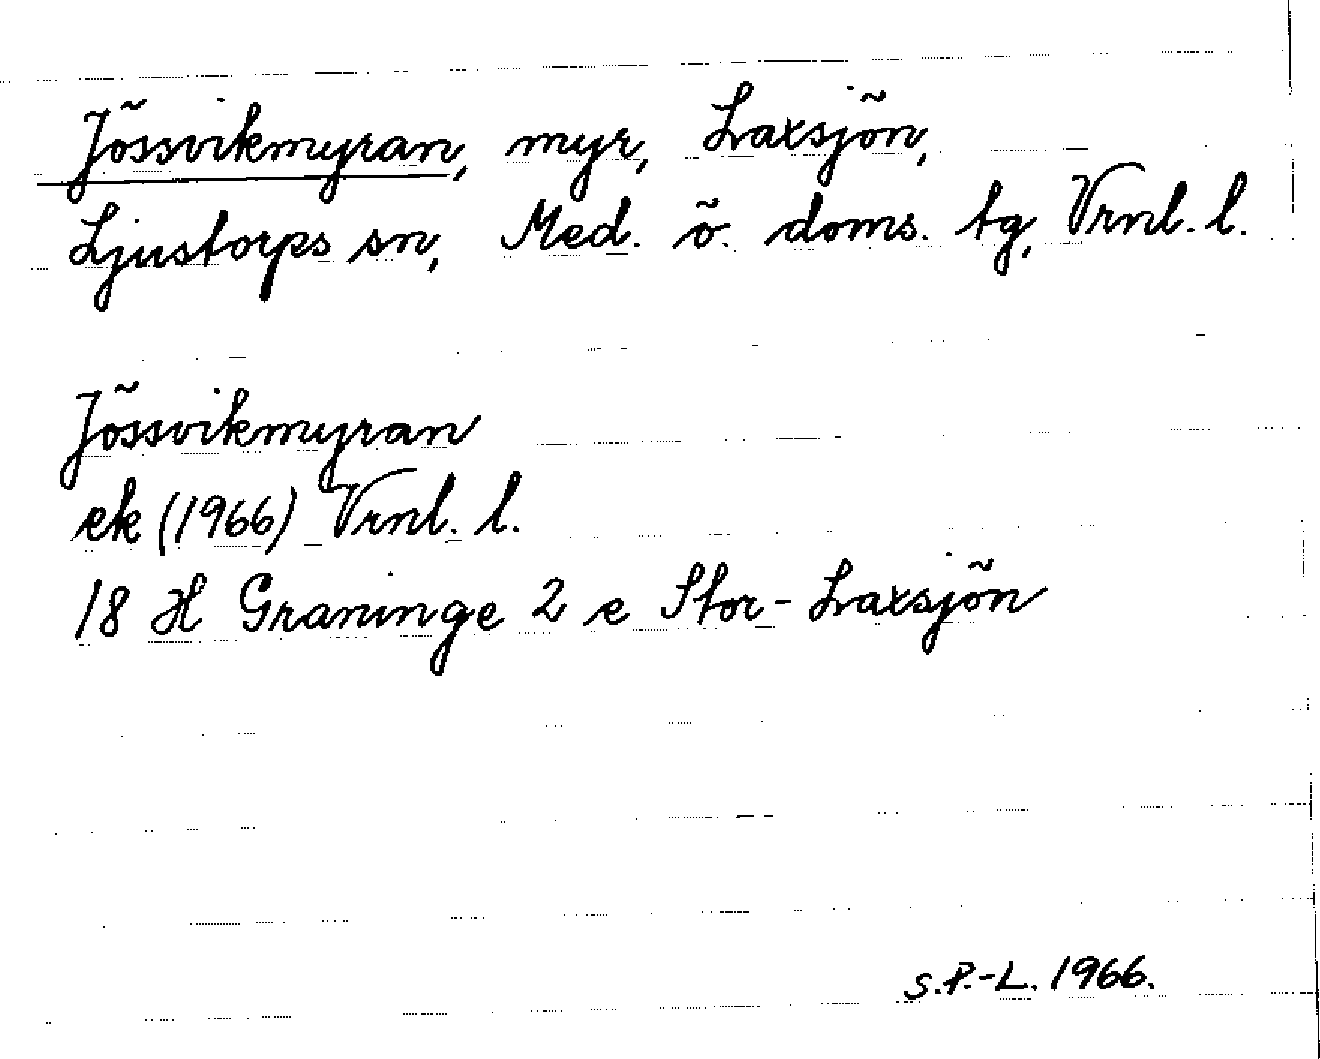 Jössvikmyran, myr, Laxsjön,
Ljustorps sn, Med. ö. doms. tg, Vrnl. l.
Jössvikmyran
ek (1966) Vrnl. l.
18 H Graninge 2 e Stor-Laxsjön
S.P.-L. 1966.